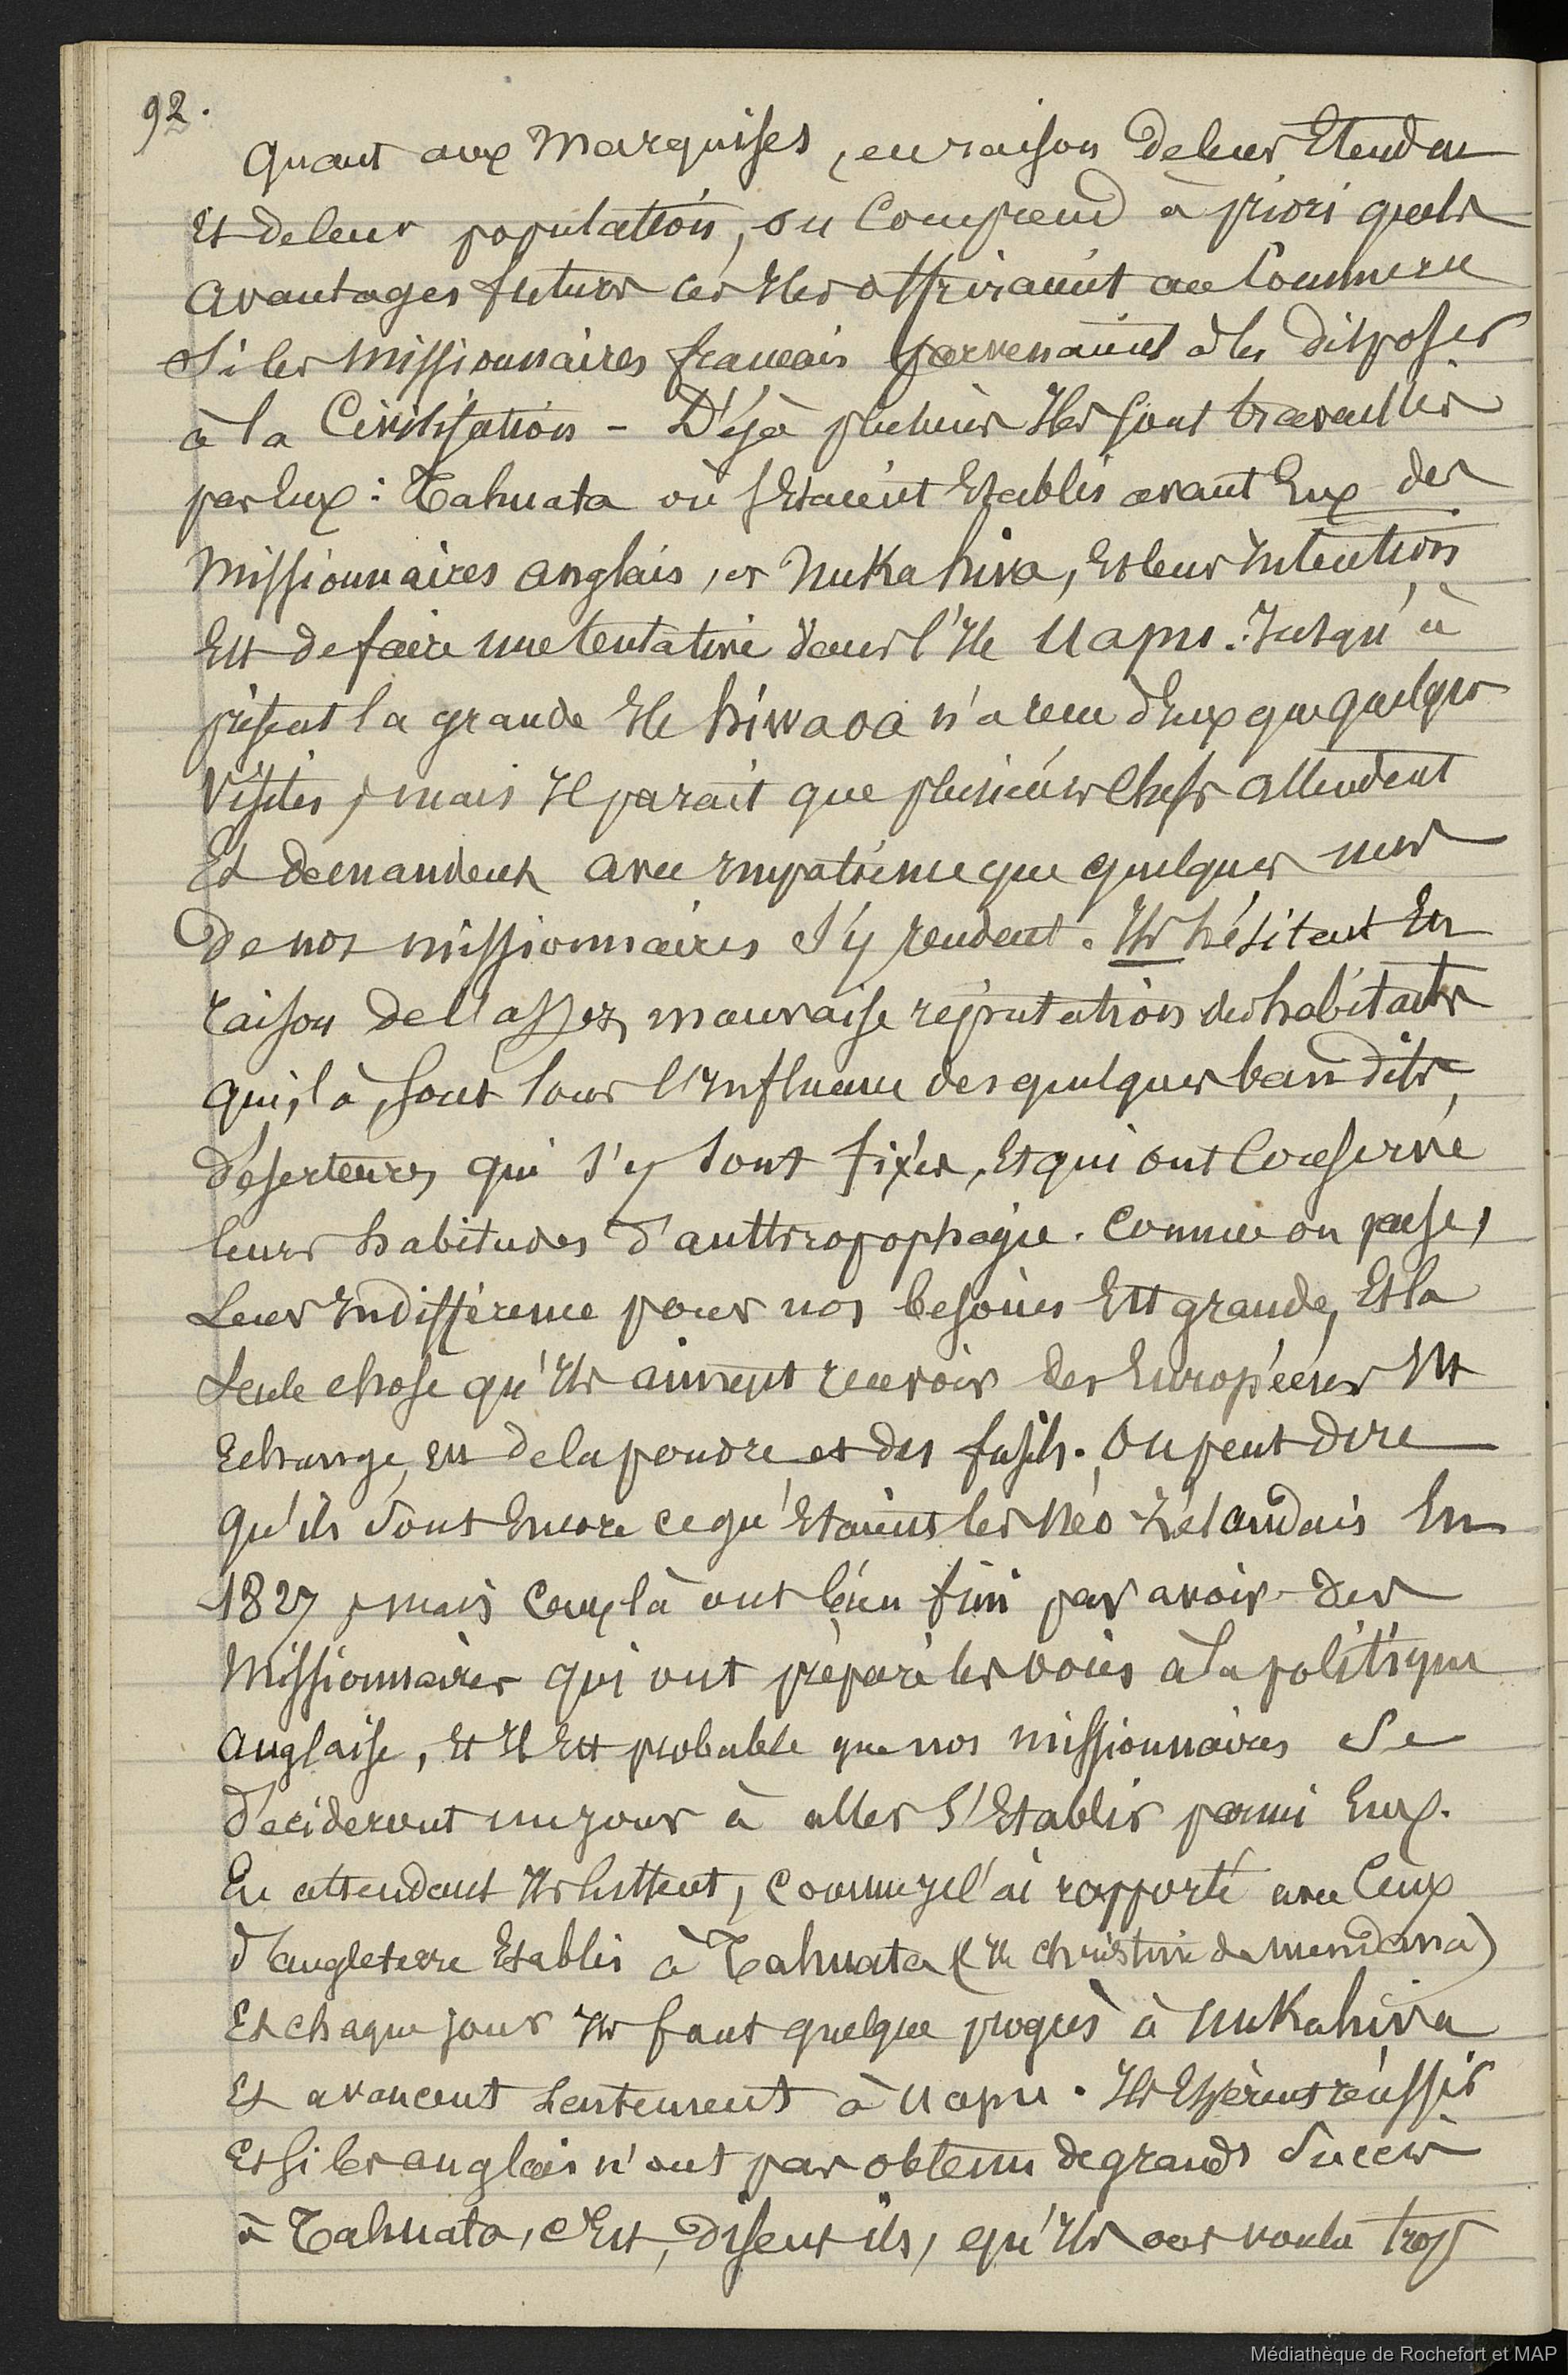 92.
Quant aux Marquises, en raison de leur Etendue
Et de leur population, on Comprend à priori quels
avantages futurs ces Iles offriraient au Commerce
Si les missionnaires français parvenaient à les disposer
à la Civilisation - Déjà plusieurs Iles sont travaillées
par Eux : Tahuata où s'Etaient Etablis avant Eux des
missionnaires anglais, et NuKahiva, Et leur Intention
Est de faire une tentative dans l'Ile Uapu. Jusqu'à
présent la grande Ile hivaoa n'a reçu d'Eux que quelques
Visites, mais Il parait que plusieurs Chefs attendent
Et demandent avec Impatience que quelques uns
de nos missionnaires s'y rendent. Ils hésitent En
raison de l'assez mauvaise réputation des habitants
qui, là, sont sous l'Influence des quelques bandits,
déserteurs, qui s'y sont fixés, Et qui ont Conservé
leurs habitudes d'anthropophagie. Comme on pense,
Leur Indifférence pour nos besoins Est grande, Et la
Seule chose qu'Ils aiment recevoir des Européens En
Echange, Est de la poudre et des fusils. On peut dire
qu'ils sont Encore ce qu'Etaient les Néo-Zélandais En
1827, mais Ceux là ont bien fini par avoir des
Missionnaires qui ont préparé les voies à la politique
anglaise, Et Il Est probable que nos missionnaires Se
décideront un jour à aller s'Etablir parmi Eux.
En attendant Ils luttent, Comme je l'ai rapporté avec Ceux
d'angleterre Etablis à Tahuata (Ile christine de mendana)
Et chaque jour Ils font quelque progrès à NuKahiva
Et avancent Lentement à Uapu. Ils Espèrent réussir
Et si les anglais n'ont pas obtenu de grands Succès
à Tahuata, c'Est, disent ils, qu'Ils ont voulu trop
Médiathèque de Rochefort et MAP